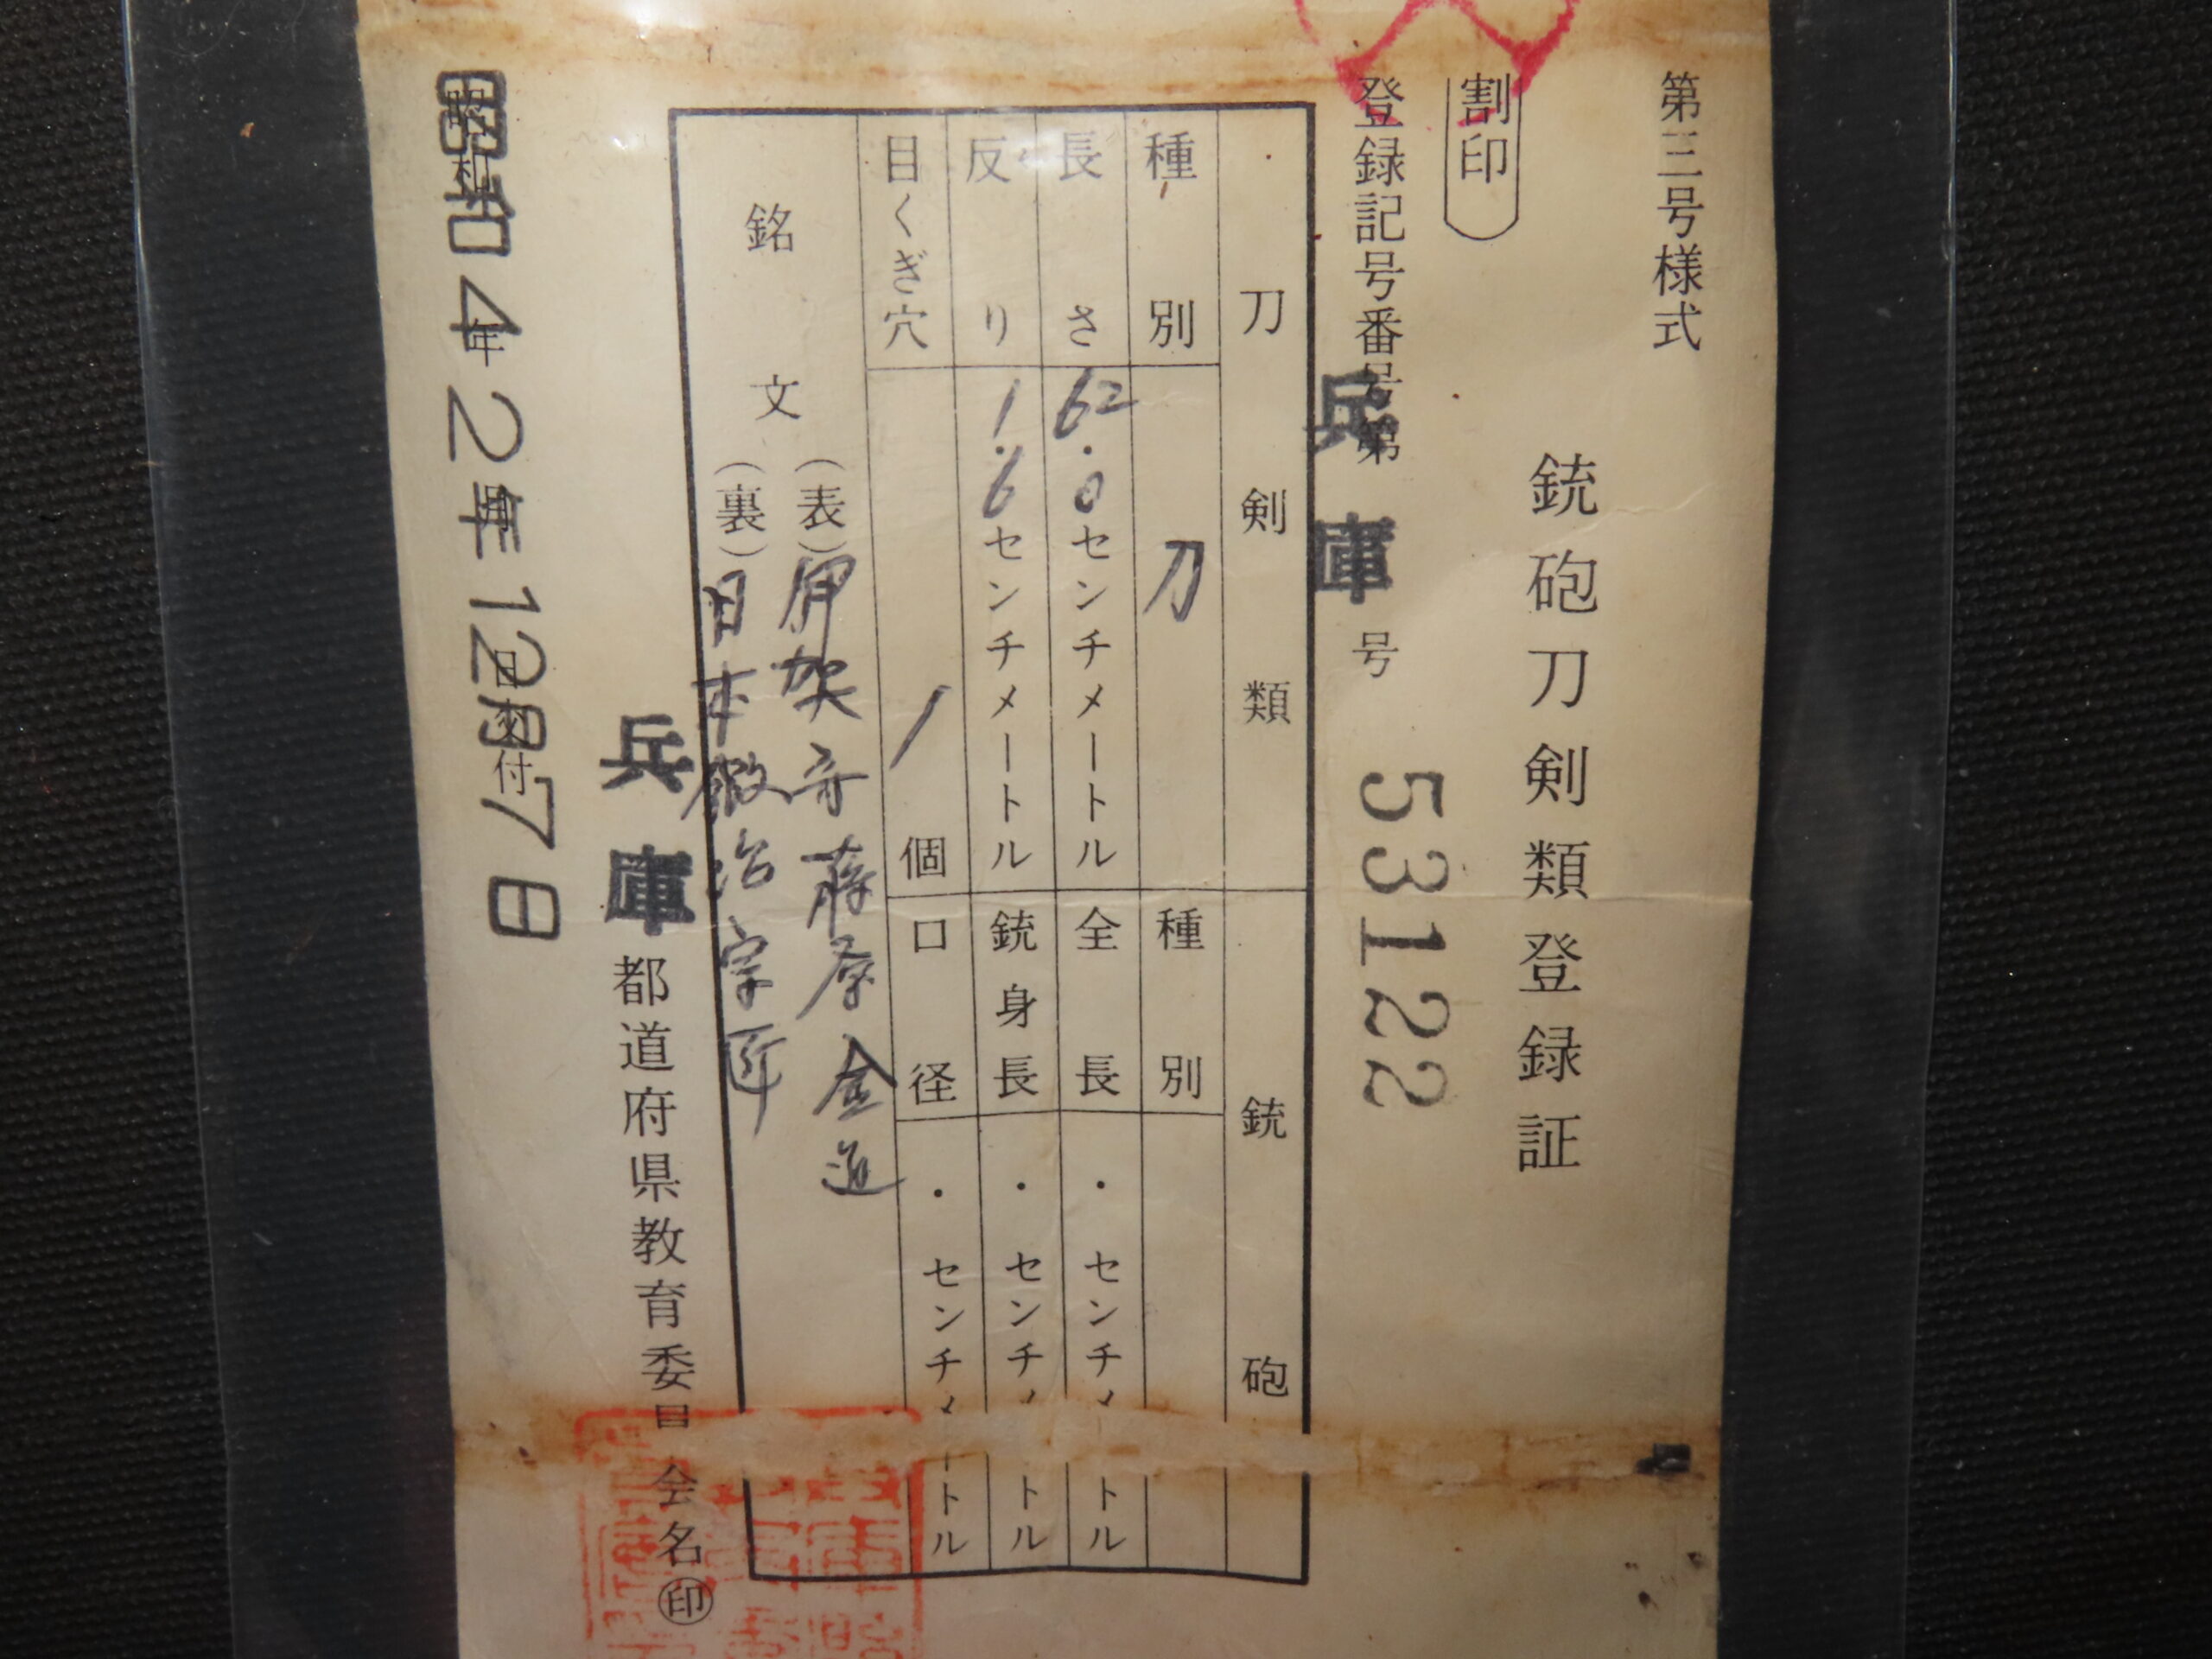 第三号様式
銃砲刀剣類登録証
割印
登録記号番号第 兵庫 号 53122
刀剣類
種別 刀
長さ 62.0センチメートル
反り 1.6センチメートル
目くぎ穴 1個
銃砲
種別
全長 ・センチメートル
銃身長 ・センチメートル
口径 ・センチメートル
銘文
(表)伊賀守藤原金道
(裏)日本鍛冶宗匠
兵庫都道府県教育委員会名印
昭和42年12月7日
交付